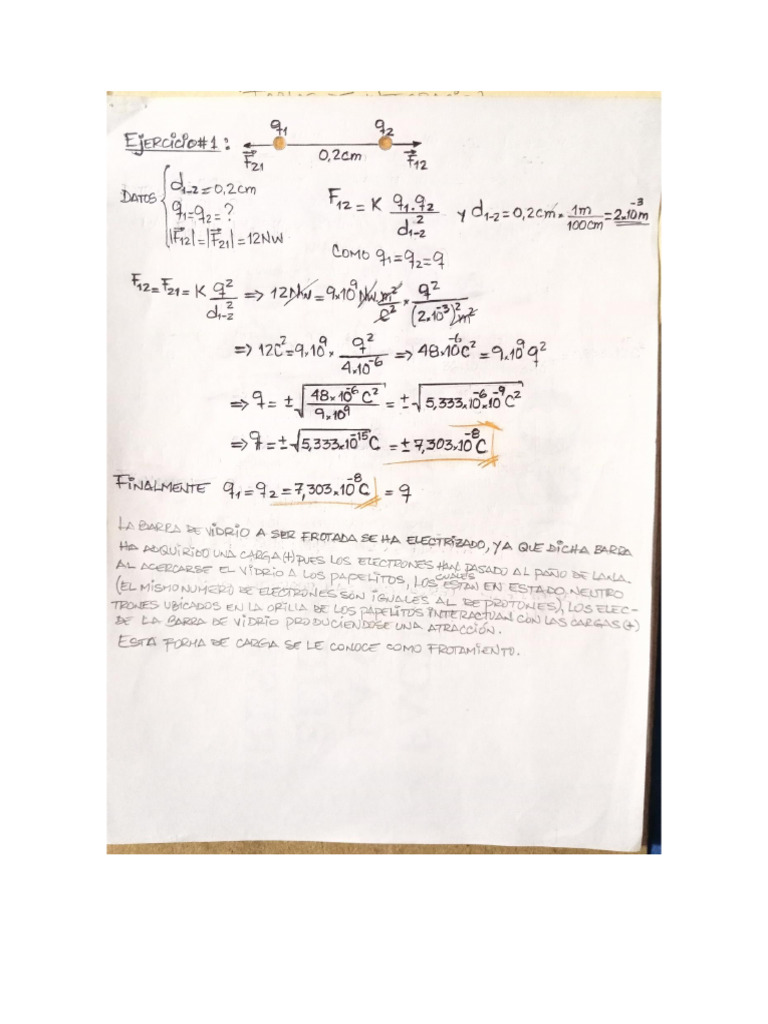 q₁ q₂
EJERCICIO#1:
F⃗₂₁ 0,2cm F⃗₁₂
DATOS { d₁₋₂=0,2cm
q₁=q₂=?
|F⃗₁₂|=|F⃗₂₁|=12NW
F₁₂ = K q₁.q₂/d₁₋₂² y d₁₋₂=0,2cm × 1m/100cm = 2.10⁻³m
COMO q₁=q₂=q
F₁₂=F₂₁=K q²/d₁₋₂² => 12Nw=9×10⁹ Nw m²/C² × q²/(2.10⁻³)²m²
=> 12C²=9.10⁹ × q²/4.10⁻⁶ => 48.10⁻⁶C²=9.10⁹q²
=> q=±√(48×10⁻⁶C²/9×10⁹) = ±√(5,333×10⁻⁶×10⁻⁹C²)
=> q=±√5,333×10⁻¹⁵ C = ±7,303×10⁻⁸C
FINALMENTE q₁=q₂=7,303×10⁻⁸C = q
LA BARRA DE VIDRIO A SER FROTADA SE HA ELECTRIZADO, YA QUE DICHA BARRA
HA ADQUIRIDO UNA CARGA(+) PUES LOS ELECTRONES HAN PASADO AL PAÑO DE LANA.
AL ACERCARSE EL VIDRIO A LOS PAPELITOS, LOS CUALES ESTAN EN ESTADO NEUTRO
(EL MISMO NUMERO DE ELECTRONES SON IGUALES AL DE PROTONES), LOS ELEC-
TRONES UBICADOS EN LA ORILLA DE LOS PAPELITOS INTERACTUAN CON LAS CARGAS (+)
DE LA BARRA DE VIDRIO PRODUCIENDOSE UNA ATRACCIÓN.
ESTA FORMA DE CARGA SE LE CONOCE COMO FROTAMIENTO.